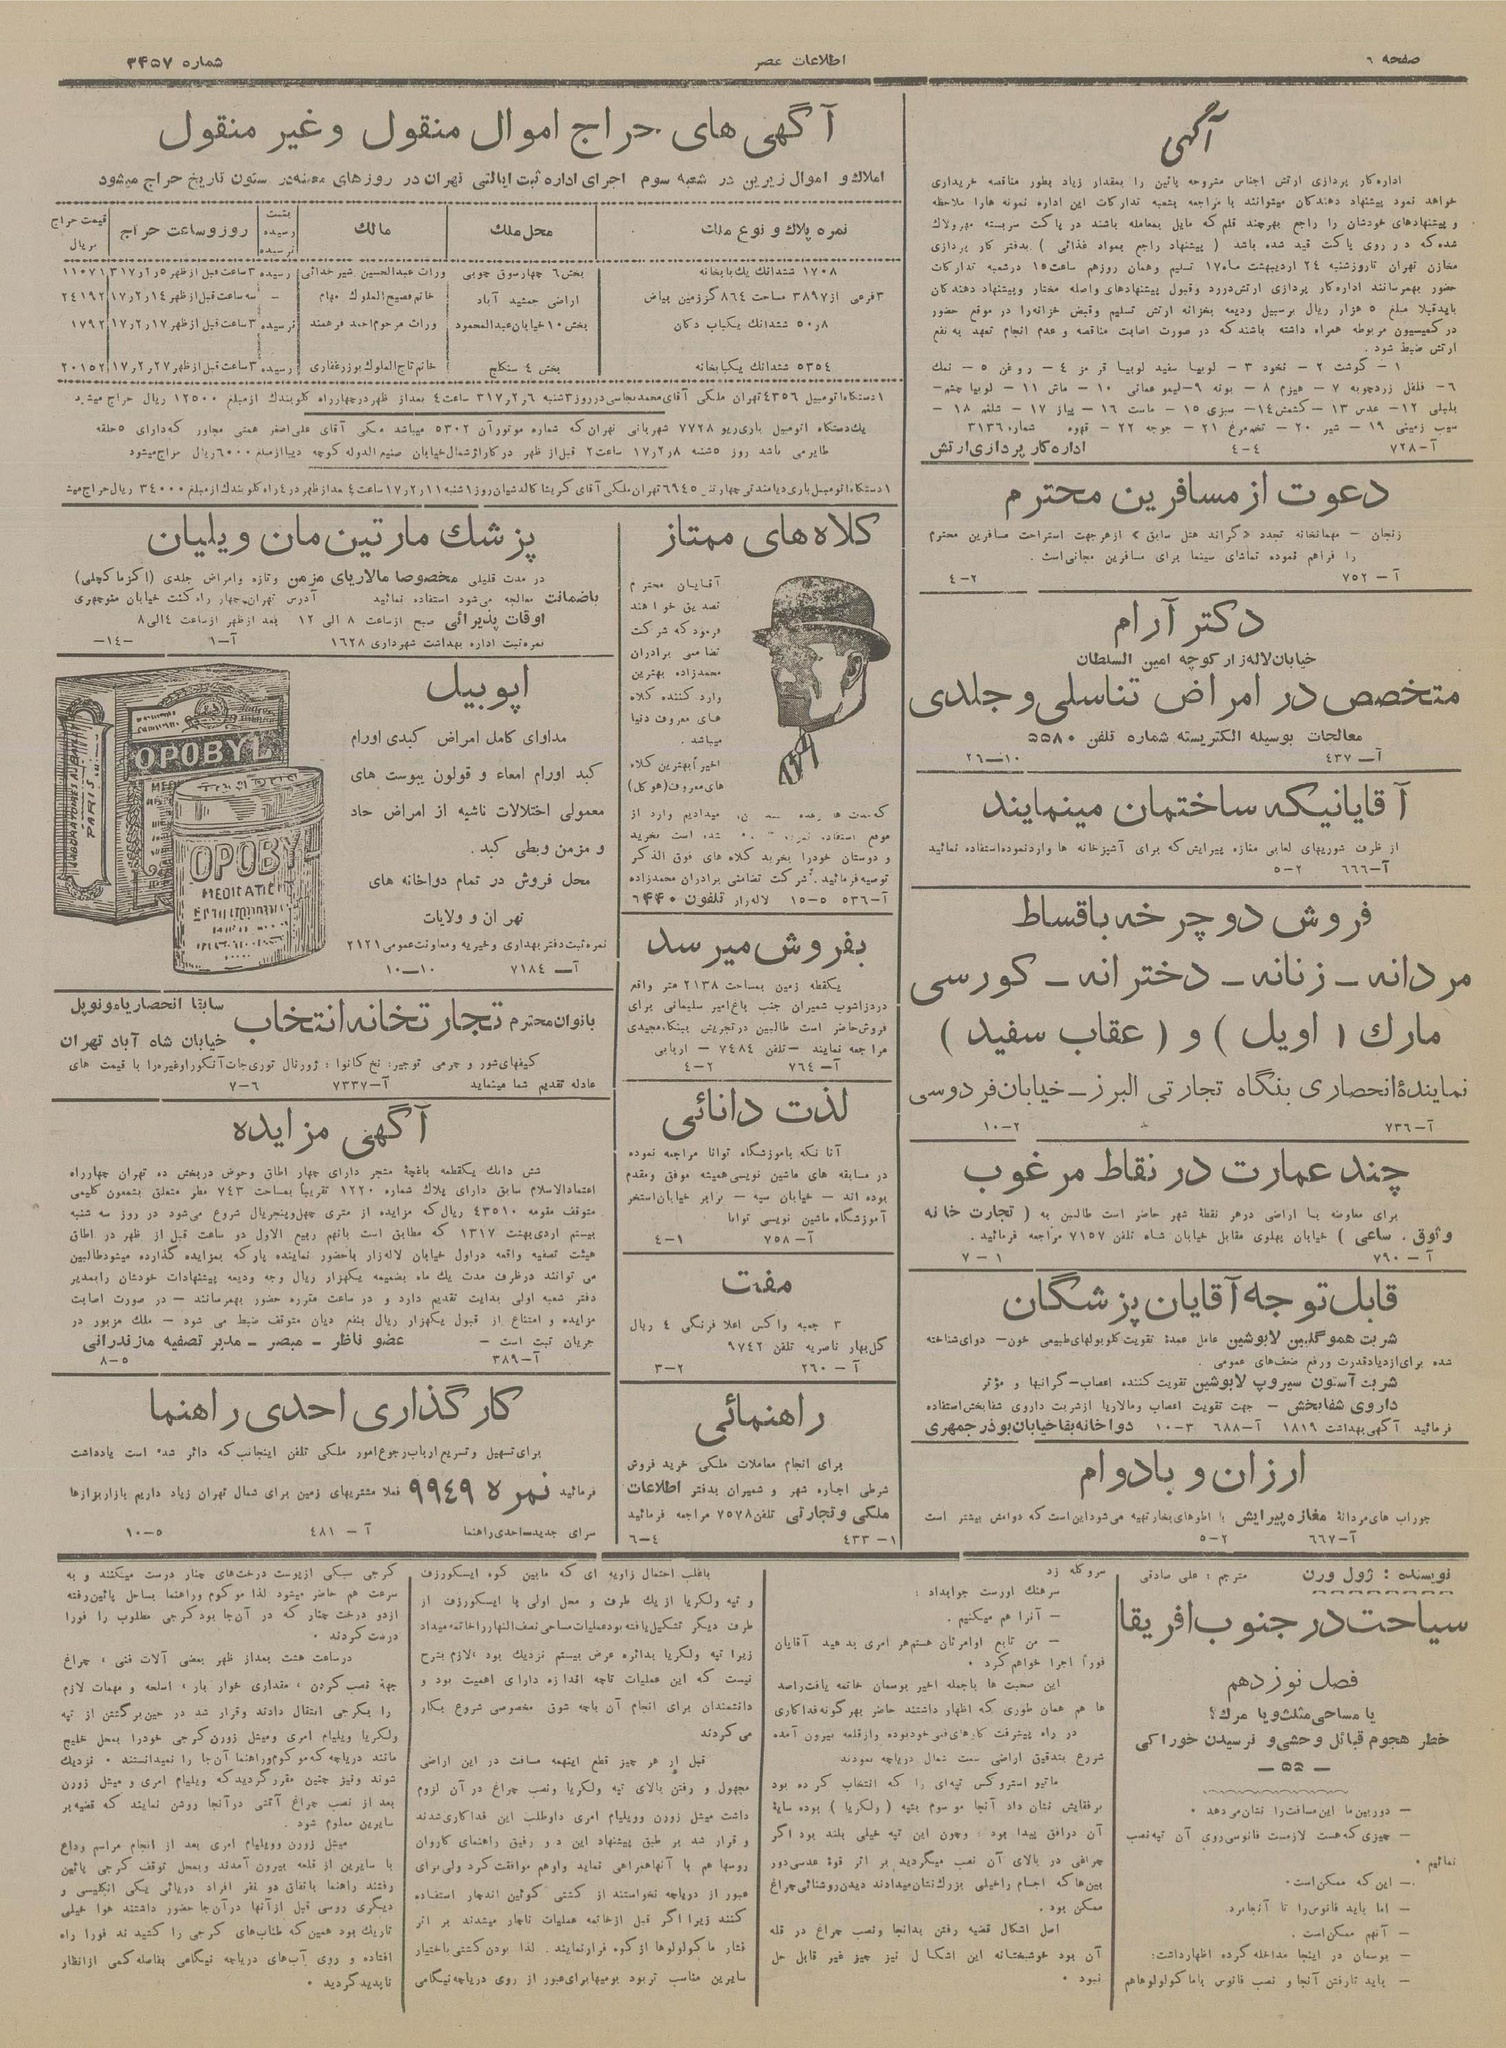 صفحه ٦
اطلاعات عصر
شماره ۳۴۵۷
آگهی
اداره کار پردازی ارتش اجناس مشروحه پائین را بمقدار زیاد بطور مناقصه خریداری
خواهد نمود پیشنهاد دهندگان میتوانند با مراجعه بشعبه تدارکات این اداره نمونه هارا ملاحظه
و پیشنهادهای خودشان را راجع بهرچند قلم که مایل بمعامله باشند در پاکت سربسته مهرولاک
شده که در روی پاکت قید شده باشد ( پیشنهاد راجع بمواد غذائی ) بدفتر کار پردازی
مخازن تهران تاروزشنبه ٢٤ اردیبهشت ماه ١٧ تسلیم وهمان روزهم ساعت ١٥ درشعبه تدارکات
حضور بهمرسانند اداره کار پردازی ارتش دررد وقبول پیشنهادهای واصله مختار وپیشنهاد دهندگان
بایدقبلا مبلغ ٥ هزار ریال برسبیل ودیعه بخزانه ارتش تسلیم وقبض خزانه‌را در موقع حضور
درکمیسیون مربوطه همراه داشته باشند که در صورت اصابت مناقصه و عدم انجام تعهد به نفع
ارتش ضبط شود .
١- گوشت ٢- نخود ٣- لوبیا سفید لوبیا قرمز ٤- روغن ٥- نمک
٦- فلفل زردچوبه ٧- هیزم ٨- بوته ٩-لیمو عمانی ١٠- ماش ١١- لوبیا چشم-
بلبلی ١٢- عدس ١٣- کشمش ١٤- سبزی ١٥- ماست ١٦- پیاز ١٧- شلغم ١٨-
سیب زمینی ١٩- شیر ٢٠- تخم مرغ ٢١- جوجه ٢٢- قهوه شماره ٣١٣٦
آ-٧٢٨ ٤-٤ اداره کار پردازی ارتش
دعوت از مسافرین محترم
زنجان - مهمانخانه تجدد «گراند هتل سابق» ازهرجهت استراحت مسافرین محترم
را فراهم نموده تماشای سینما برای مسافرین مجانی است .
آ- ٧٥٢ ٢-٤
دکتر آرام
خیابان لاله زار کوچه امین السلطان
متخصص در امراض تناسلی و جلدی
معالجات بوسیله الکتریسته شماره تلفن ۵۵۸۰
آ- ٤٣٧ ١٠-٢٦
آقایانیکه ساختمان مینمایند
از ظرف شوریهای لعابی مغازه پیرایش که برای آشپزخانه ها واردنموده استفاده نمائید
آ-٦٦٦ ٢-٥
فروش دو چرخه باقساط
مردانه - زنانه - دخترانه - کورسی
مارك ( اویل ) و ( عقاب سفید )
نمایندهٔ انحصاری بنگاه تجارتی البرز - خیابان فردوسی
آ-٧٣٦ ٢-١٠
چند عمارت در نقاط مرغوب
برای معاوضه با اراضی درهر نقطهٔ شهر حاضر است طالبین به ( تجارت خانه
وثوق . ساعی ) خیابان پهلوی مقابل خیابان شاه تلفن ٧١٥٧ مراجعه فرمائید .
آ- ٧٩٠ ١-٧
قابل توجه آقایان پزشگان
شربت هموگلبین لابوشین عامل عمدهٔ تقویت گلوبولهای طبیعی خون- دوای شناخته
شده برای ازدیادقدرت ورفع ضعف‌های عمومی .
شربت آستون سیروپ لابوشین تقویت کننده اعصاب-گرانبها و مؤثر
داروی شفابخش - جهت تقویت اعصاب ومالاریا ازشربت داروی شفابخش استفاده
فرمائید آگهی بهداشت ١٨١٩ آ-٦٨٨ ٣-١٠ دواخانه بقا خیابان بوذرجمهری
ارزان و بادوام
جوراب های مردانهٔ مغازه پیرایش با اطوهای بخار تهیه می‌شود این است که دوامش بیشتر است
آ-٦٦٧ ٢-٥
آگهی های حراج اموال منقول و غیر منقول
املاك و اموال زیرین در شعبه سوم اجرای اداره ثبت ایالتی تهران در روزهای معینه در ستون تاریخ حراج میشود
نمره پلاك و نوع ملك محل ملك مالك بثبت رسیده نرسیده روز و ساعت حراج قیمت حراج بریال
١٧٠٨ ششدانك یك بابخانه بخش ٦ چهارسوق چوبی وراث عبدالحسین شیرخدائی رسیده ٣ ساعت قبل از ظهر ٥ر٢ر٣١٧ ١١٠٧١
٣ فرعی از ٣٨٩٧ مساحت ٨٦٤ گز زمین بیاض اراضی جمشید آباد خانم فصیح الملوك مهام - سه ساعت قبل از ظهر ١٤ر٢ر١٧ ٢٤١٩٢
٥٠ر٨ ششدانك یکباب دکان بخش ١٠ خیابان عبدالمحمود وراث مرحوم احمد فرهمند نرسیده ٣ ساعت قبل از ظهر ١٧ر٢ر١٧ ١٧٩٢
٥٣٥٤ ششدانك یکبابخانه بخش ٤ سنگلج خانم تاج الملوك بوزرغفاری رسیده ٣ ساعت قبل از ظهر ٢٧ر٢ر١٧ ٢٠١٥٢
١ دستگاه اتومبیل ٤٣٥٦ تهران ملکی آقای محمد نجاسی در روز ٣ شنبه ٦ر٢ر٣١٧ ساعت ٤ بعداز ظهر در چهارراه گلوبندك از مبلغ ١٢٥٠٠ ریال حراج میشود
یك دستگاه اتومبیل باری ریو ٧٧٢٨ شهربانی تهران که شماره موتور آن ٥٣٠٢ میباشد ملکی آقای علی اصغر همتی مجاور که دارای ٥ حلقه
طایر می باشد روز ٥ شنبه ٨ر٢ر١٧ ساعت ٢ قبل از ظهر در گاراژ شمال خیابان صنیع الدوله کوچه دیبا از مبلغ ٦٠٠٠ ریال حراج میشود
١ دستگاه اتومبیل باری دیامندتی چهارتنی ٦٩٤٥ تهران ملکی آقای کریشا کالدشیان روز ١ شنبه ١١ر٢ر١٧ ساعت ٤ بعداز ظهر در ٤ راه گلوبندك از مبلغ ٣٤٠٠٠ ریال حراج میشود
کلاه های ممتاز
آقایان محترم
تصدیق خواهند
فرمود که شرکت
تضامنی برادران
محمدزاده بهترین
وارد کننده کلاه
های معروف دنیا
میباشد .
اخیراً بهترین کلاه
های معروف (هوکل)
و دوستان خودرا بخرید کلاه های فوق الذکر
توصیه فرمائید . شرکت تضامنی برادران محمدزاده
آ-٥٣٦ ٥-١٥ لاله زار تلفون ٦۴۴۰
بفروش میرسد
یکقطه زمین بمساحت ٢١٣٨ متر واقع
دردزاشوب شمیران جنب باغ امیر سلیمانی برای
فروش حاضر است طالبین درتجریش ببنگاه مجیدی
مراجعه نمایند -تلفن ٧٤٨٤ - اربابی
آ- ٧٦٤ ٢-٤
لذت دانائی
آنا نکه باموزشگاه توانا مراجعه نموده
در مسابقه های ماشین نویسی همیشه موفق ومقدم
بوده اند - خیابان سپه - برابر خیابان استخر
آموزشگاه ماشین نویسی توانا
آ- ٧٥٨ ١-٤
مفت
٣ جعبه واکس اعلا فرنگی ٤ ریال
گل بهار ناصریه تلفن ٩٧٤٢
آ- ٢٦٠ ٢-٣
راهنمائی
برای انجام معاملات ملکی خرید فروش
شرطی اجاره شهر و شمیران بدفتر اطلاعات
ملکی و تجارتی تلفن ٧٥٧٨ مراجعه فرمائید
١- ٤٣٣ ٤-٦
پزشك مارتین مان ویلیان
در مدت قلیلی مخصوصا مالاریای مزمن وتازه وامراض جلدی (اکزما کچلی)
باضمانت معالجه می‌شود استفاده نمائید آدرس تهران چهار راه کنت خیابان منوچهری
اوقات پذیرائی صبح از ساعت ٨ الی ١٢ بعد از ظهر از ساعت ٤ الی ٨
نمره ثبت اداره بهداشت شهرداری ١٦٢٨ آ-٦ -١٤-
اپوبیل
مداوای کامل امراض کبدی اورام
کبد اورام امعاء و قولون یبوست های
معمولی اختلالات ناشیه از امراض حاد
و مزمن وبطی کبد .
محل فروش در تمام دواخانه های
تهران و ولایات
نمره ثبت دفتر بهداری وخیریه ومعاونت عمومی ٢١٢١
آ- ٧١٨٤ ١٠-١٠
OPOBYL
OPOBY
MEDICATIE
PARIS
بانوان محترم تجارتخانه انتخاب سابقا انحصار یامونوپل
خیابان شاه آباد تهران
کیفهای شور و چرمی توجیر: نخ کانوا ؛ ژورنال توری جات آنکورا وغیره را با قیمت های
عادله تقدیم شما مینماید آ-٧٣٣٧ ٦-٧
آگهی مزایده
شش دانك یکقطعه باغچهٔ مشجر دارای چهار اطاق وحوض دربخش ده تهران چهارراه
اعتمادالاسلام سابق دارای پلاك شماره ١٢٢٠ تقریباً بمساحت ٧٤٣ مطر متعلق بشمعون کلیمی
متوقف مقومه ٤٣٥١٠ ریال که مزایده از متری چهل وپنجریال شروع می‌شود در روز سه شنبه
بیستم اردی‌بهشت ١٣١٧ که مطابق است بانهم ربیع الاول دو ساعت قبل از ظهر در اطاق
هیئت تصفیه واقعه دراول خیابان لاله‌زار باحضور نماینده پارکه بمزایده گذارده میشود طالبین
می توانند درظرف مدت یك ماه بضمیمه یکهزار ریال وجه ودیعه پیشنهادات خودشان رابمدیر
دفتر شعبه اولی بدایت تقدیم دارد و در ساعت مقرره حضور بهمرسانند - در صورت اصابت
مزایده و امتناع از قبول یکهزار ریال بنفع دیان متوقف ضبط می شود - ملك مزبور در
جریان ثبت است - عضو ناظر - مبصر - مدیر تصفیه مازندرانی
آ-٣٨٩ ٥-٨
کارگذاری احدی راهنما
برای تسهیل و تسریع ارباب رجوع امور ملکی تلفن اینجانب که دائر شده است یادداشت
فرمائید نمره ۹۹۴۹ فعلا مشتریهای زمین برای شمال تهران زیاد داریم بازار بزازها
سرای جدید-احدی راهنما آ- ٤٨١ ٥-١٠
نویسنده : ژول ورن مترجم : علی صادقی
سیاحت در جنوب افریقا
فصل نوزدهم
یا مساحی مثلث و یا مرك؟
خطر هجوم قبائل وحشی و نرسیدن خوراکی
- ۵۵ -
- دوربین ما این مسافت را نشان می‌دهد .
- چیزی که هست لازمست فانوسی روی آن تپه نصب
نمائیم .
- این که ممکن است .
- اما باید فانوس را تا آنجا برد .
- آنهم ممکن است .
- بوسمان در اینجا مداخله کرده اظهار داشت:
- باید تا رفتن آنجا و نصب فانوس با ماکولولوها هم
سر و کله زد
سرهنك اورست جوابداد :
- آنرا هم میکنیم .
- من تابع اوامرتان هستم هر امری بدهید آقایان
فوراً اجرا خواهم کرد .
این صحبت ها با جمله اخیر بوسمان خاتمه یافت راصد
ها هم همان طوری که اظهار داشتند حاضر بهرگونه فداکاری
در راه پیشرفت کارهای فنی خود بوده و از قلعه بیرون آمده
شروع بتدقیق اراضی سمت شمال دریاچه نمودند
ماتیو استروکس تپه‌ای را که انتخاب کرده بود
برفقایش نشان داد آنجا موسوم بتپه ( ولکریا ) بوده سایهٔ
آن درافق پیدا بود : وچون این تپه خیلی بلند بود اگر
چراغی در بالای آن نصب میگردید بر اثر قوهٔ عدسی دور
بین‌ها که اجسام را خیلی بزرك نشان میدادند دیدن روشنائی چراغ
ممکن بود .
اصل اشکال قضیه رفتن بدانجا ونصب چراغ در قله
آن بود خوشبختانه این اشکال نیز چیز غیر قابل حل
نبود .
باغلب احتمال زاویه ای که مابین کوه ایسکورزف
و تپه ولکریا از یك طرف و محل اولی با ایسکورزف از
طرف دیگر تشکیل یافته بود عملیات مساحی نصف النهار را خاتمه میداد
زیرا تپه ولکریا بدائره عرض بیستم نزدیك بود «لازم بشرح
نیست که این عملیات تاچه اندازه دارای اهمیت بود و
دانشمندان برای انجام آن باچه شوق مخصوصی شروع بکار
می کردند
قبل از هر چیز قطع اینهمه مسافت در این اراضی
مجهول و رفتن بالای تپه ولکریا ونصب چراغ در آن لزوم
داشت میثل زورن وویلیام امری داوطلب این فداکاری شدند
و قرار شد بر طبق پیشنهاد این دو رفیق راهنمای کاروان
روسها هم با آنها همراهی نماید واوهم موافقت کرد ولی برای
عبور از دریاچه نخواستند از کشتی کوئین اند چار استفاده
کنند زیرا اگر قبل از خاتمه عملیات ناچار میشدند بر اثر
فشار ماکولولوها از کوه فرار نمایند . لذا بودن کشتی باختیار
سایرین مناسب تر بود بومیها برای عبور از روی دریاچه نیگامی
کرجی سبکی از پوست درخت‌های چنار درست میکنند و به
سرعت هم حاضر میشود لذا موکوم وراهنما بساحل پائین رفته
از دو درخت چنار که در آن‌جا بود کرجی مطلوب را فورا
درست کردند .
درساعت هشت بعداز ظهر بعضی آلات فنی ، چراغ
جهة نصب کردن ، مقداری خوار بار ، اسلحه و مهمات لازم
را بکرجی انتقال دادند وقرار شد در حین برگشتن از تپه
ولکریا ویلیام امری ومیثل زورن کرجی خودرا بمحل خلیج
مانند دریاچه که موکوم وراهنما آن‌جا را نمیدانستند . نزدیك
شوند ونیز چنین مقرر گردید که ویلیام امری و میثل زورن
بعد از نصب چراغ آتشی درآنجا روشن نمایند که قضیه بر
سایرین معلوم شود .
میثل زورن وویلیام امری بعد از انجام مراسم وداع
با سایرین از قلعه بیرون آمدند وبمحل توقف کرجی پائین
رفتند راهنما باتفاق دو نفر افراد دریائی یکی انگلیسی و
دیگری روسی قبل از آنها در آن‌جا حضور داشتند هوا خیلی
تاریك بود همین که طناب‌های کرجی را کشیدند فورا راه
افتاده و روی آب‌های دریاچه نیگامی بفاصله کمی از انظار
ناپدید گردید .